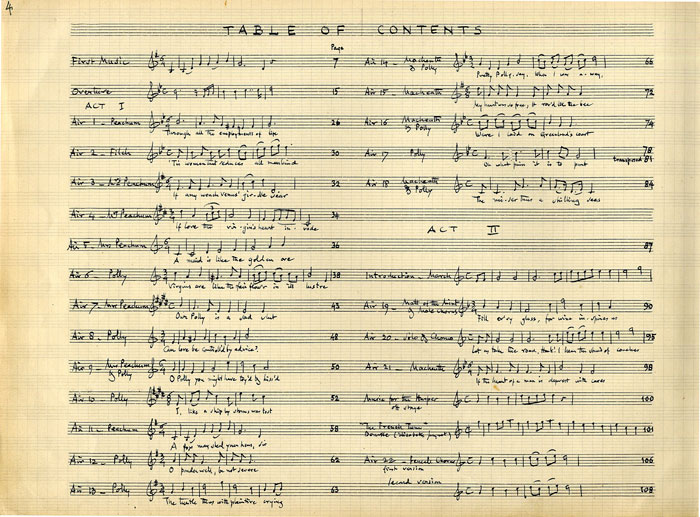 4
TABLE OF CONTENTS
Page
First Music 7
Overture 15
ACT I
Air 1 - Peachum 26
Through all the employments of life
Air 2 - Filch 30
'Tis woman that seduces all mankind
Air 3 - Mrs Peachum 32
If any wench Venus' girdle wear
Air 4 - Mrs Peachum 34
If love the virgin's heart invade
Air 5 - Mrs Peachum 36
A maid is like the golden ore
Air 6 - Polly 38
Virgins are like the fair flower in its lustre
Air 7 - Mrs Peachum 43
Our Polly is a sad slut
Air 8 - Polly 48
Can love be controll'd by advice?
Air 9 - Mrs Peachum & Polly 50
O Polly you might have toy'd & kiss'd
Air 10 - Polly 52
I, like a ship by storms was tost
Air 11 - Peachum 58
A fox may steal your hens, sir
Air 12 - Polly 62
O ponder well, be not severe
Air 13 - Polly 63
The turtle thus with plaintive crying
Air 14 - Macheath & Polly 66
Pretty Polly, say, When I was a-way,
Air 15 - Macheath 72
My heart was so free, It rov'd like the bee
Air 16 Macheath & Polly 74
Were I laid on Greenland's coast
Air 17 Polly 78
transposed 81
Oh what pain it is to part
Air 18 Macheath & Polly 84
The miser thus a shilling sees
ACT II
87
Introduction - March
Air 19 - Matt of the Mint & Male Chorus 90
Fill every glass, for wine inspires us
Air 20 - solo & Chorus 95
Let us take the road, Hark! I hear the sound of coaches
Air 21 - Macheath 98
If the heart of a man is deprest with cares
Music for the Harper off stage 100
"The French Tune" 101
Air 22 - female Chorus 106
first version
second version 108